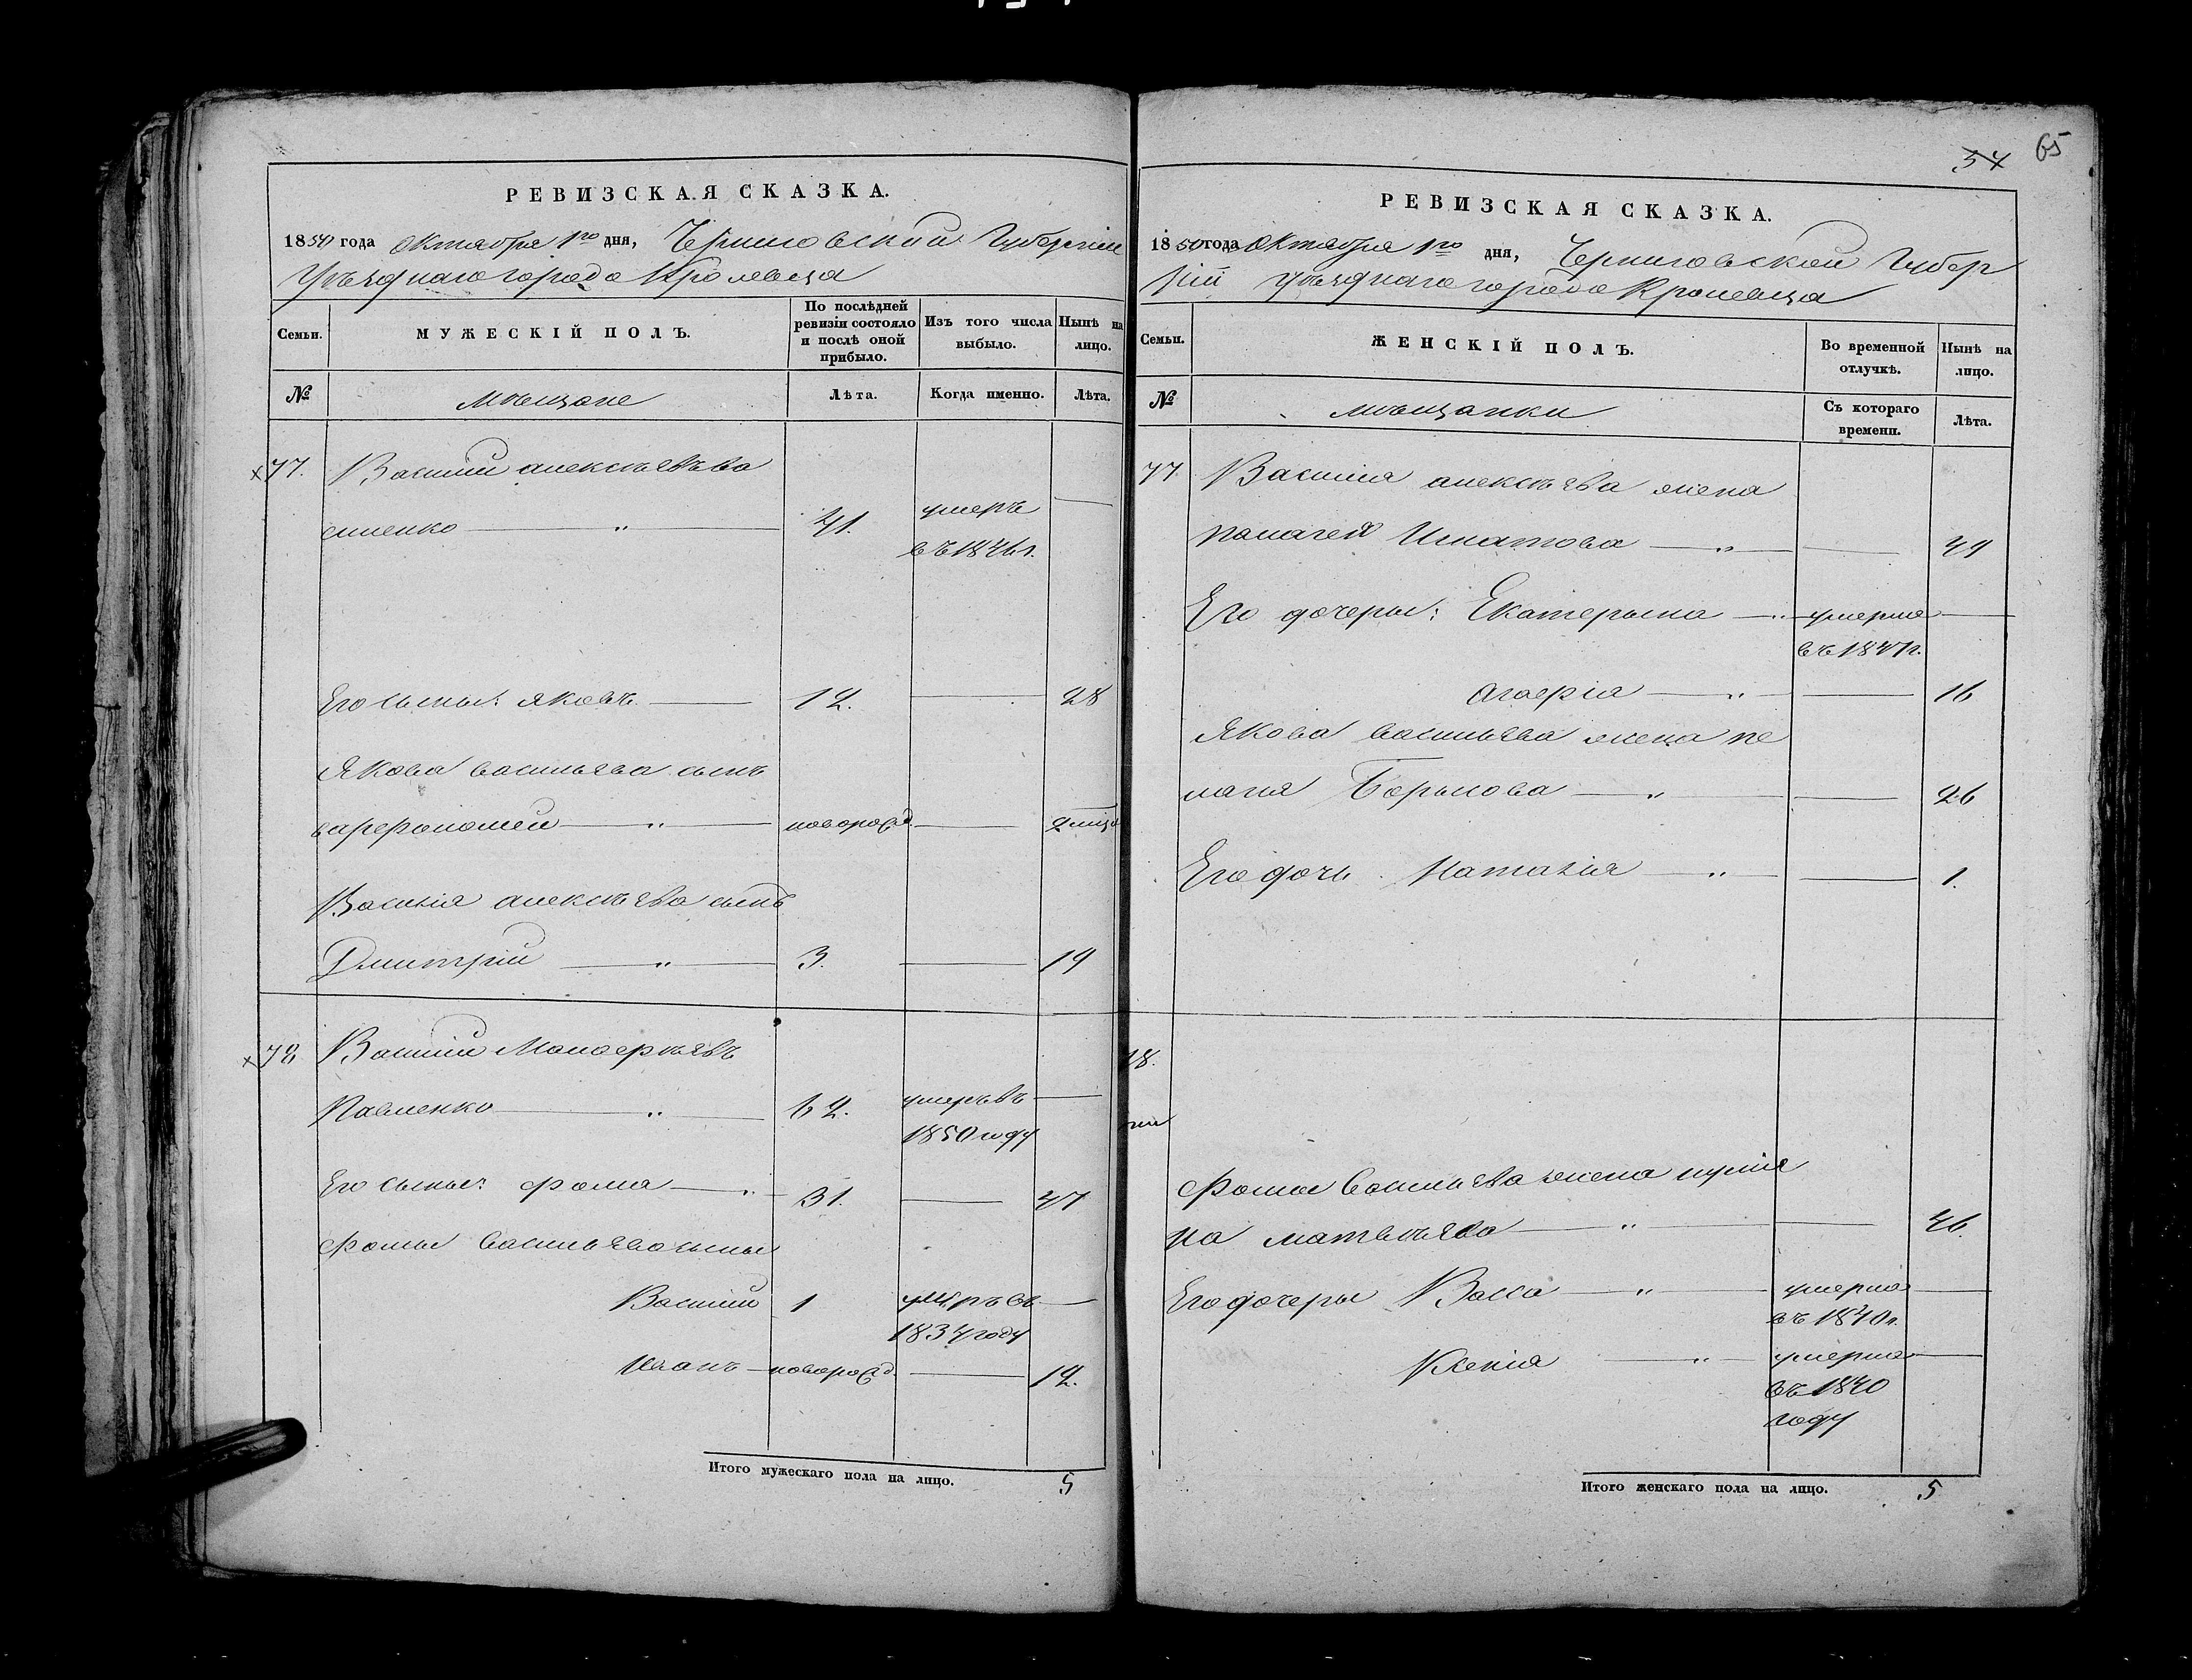 65
54
РЕВИЗСКАЯ СКАЗКА.
1850 года Октября 1го дня, Черниговской Губерніи
Уѣзднаго города Кролевца
Семьи.
МУЖЕСКІЙ ПОЛЪ.
По послѣдней ревизіи состояло и послѣ оной прибыло.
Изъ того числа выбыло.
Нынѣ на лицо.
№
Мѣщане
Лѣта.
Когда именно.
Лѣта.
77. Василій алексѣевъ
умеръ
41.
въ 1846г.
Его сыны: яковъ — 12. — 28
Якова васильева сынъ
варфоломей — " — новорожд. —
Василія алексѣева сынъ
Дмитрій — " — 3. — 19
78 Василій
Павленко — " — 62. умеръ въ —
1850 году
Его сыны: фома — " — 31. — 47
Фомы васильева сыны
Василій 1 умеръ въ —
1834 году
Иванъ — новорожд. — 12.
Итого мужескаго пола на лицо. 5
РЕВИЗСКАЯ СКАЗКА.
1850 года Октября 1го дня, Черниговской Губер
ніи уѣзднаго города Кролевца
Семьи.
ЖЕНСКІЙ ПОЛЪ.
Во временной отлучкѣ.
Нынѣ на лицо.
№
мѣщанки
Съ котораго времени.
Лѣта.
77 Василія алексѣева жена
Палагея Игнатова — " — 49
Его дочеры: Екатерына — " — умерла —
въ 1847г.
агафія — " — 16
Якова васильева жена ме
ланія — " — 26
Его дочь Наталія — " — 1.
78.
Фомы васильева жена
на матвѣева — " — 46.
Его дочеры Васса — " — умерла —
въ 1840г.
Ксенія — " — умерла —
въ 1840
году
Итого женскаго пола на лицо. 5